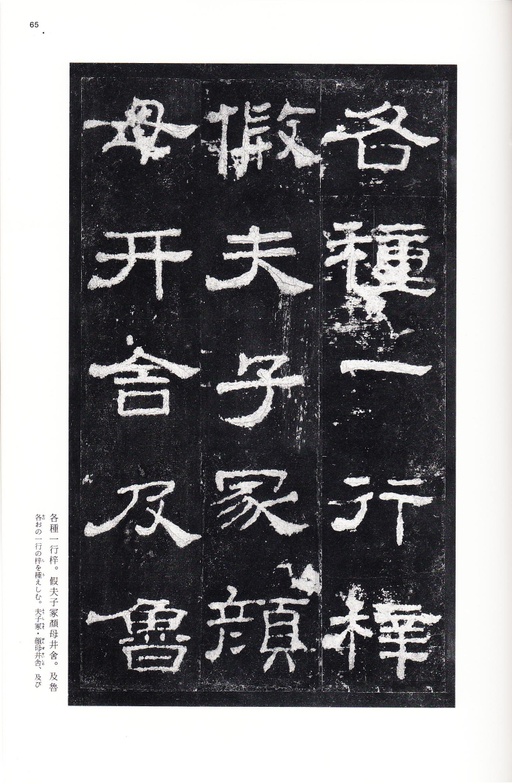 65
各種一行梓
假夫子冢顏
母开舍及魯
各種一行梓。假夫子冢顏母井舍。及魯
各おの一行の梓を種えしむ。夫子冢・顏母井舍、及び